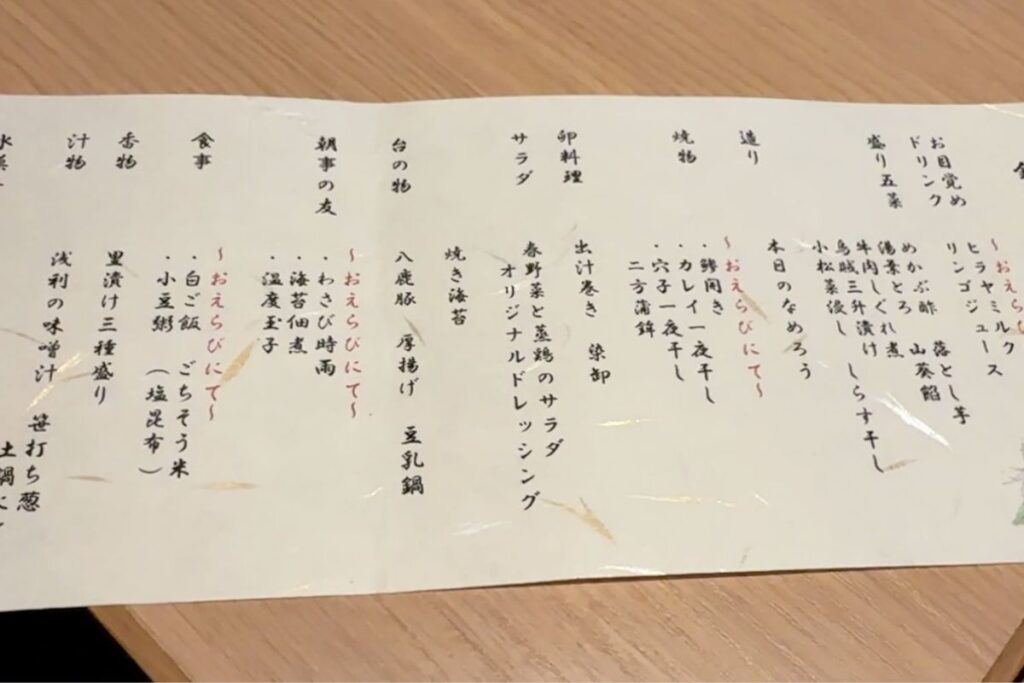 お目覚め
ドリンク
～おえらび
ヒラヤミルク
リンゴジュース
盛り五菜
めかぶ酢 落とし芋
湯葉とろ 山葵餡
牛肉しぐれ煮
烏賊三升漬け しらす干し
小松菜浸し
造り
本日のなめろう
焼物
～おえらびにて～
・鯵開き
・カレイ一夜干し
・穴子一夜干し
二方蒲鉾
卵料理
出汁巻き 染卸
サラダ
春野菜と蒸鶏のサラダ
オリジナルドレッシング
焼き海苔
台の物
八鹿豚 厚揚げ 豆乳鍋
朝事の友
～おえらびにて～
・わさび時雨
・海苔佃煮
・温度玉子
食事
～おえらびにて～
・白ご飯 ごちそう米
・小豆粥 （塩昆布）
香物
里漬け三種盛り
汁物
浅利の味噌汁 笹打ち葱
土鍋